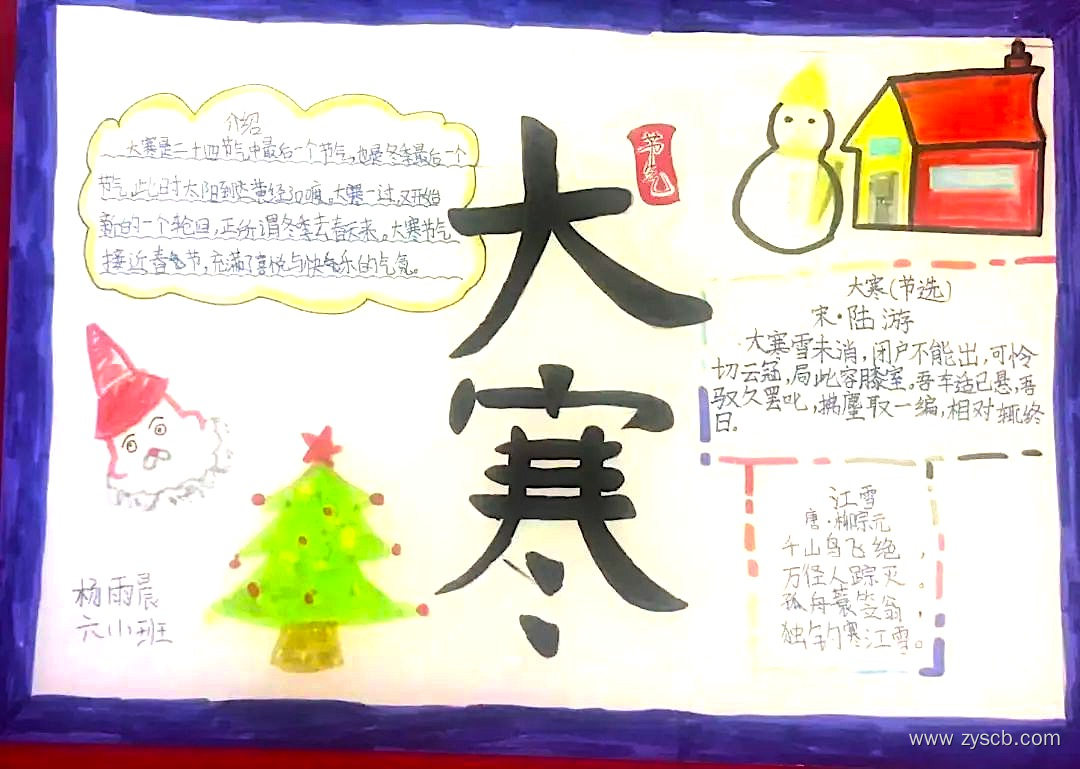 介绍
大寒是二十四节气中最后一个节气,也是冬季最后一个
节气,此时太阳到达黄经300度。大寒一过,又开始
新的一个轮回,正所谓冬季去春天来。大寒节气
接近春节,充满了喜悦与快乐的气氛。
大
寒
节气
大寒(节选)
宋·陆游
大寒雪未消,闭户不能出,可怜
切云冠,局此容膝室。吾车适已悬,吾
驭久罢叱,拂尘取一编,相对辄终
日。
江雪
唐·柳宗元
千山鸟飞绝,
万径人踪灭。
孤舟蓑笠翁,
独钓寒江雪。
杨雨晨
六小班
www.zyscb.com